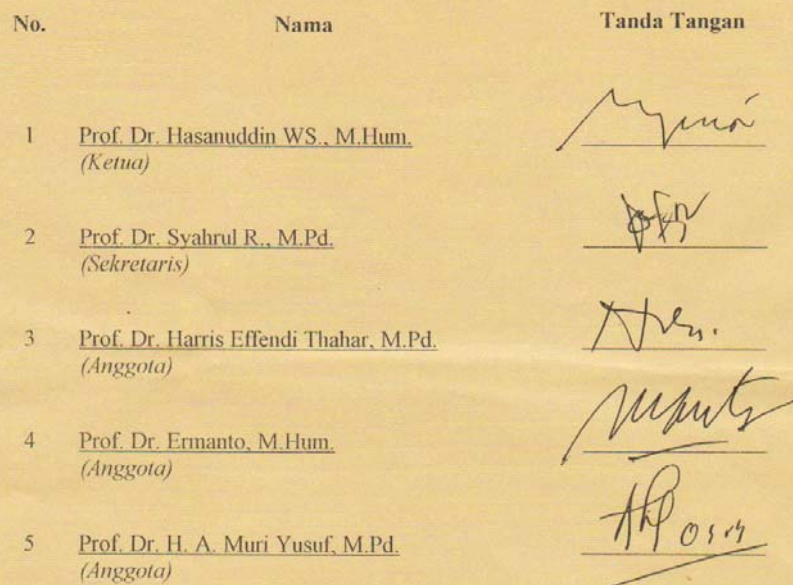 No. Nama Tanda Tangan
1 Prof. Dr. Hasanuddin WS., M.Hum.
(Ketua)
2 Prof. Dr. Syahrul R., M.Pd.
(Sekretaris)
3 Prof. Dr. Harris Effendi Thahar, M.Pd.
(Anggota)
4 Prof. Dr. Ermanto, M.Hum.
(Anggota)
5 Prof. Dr. H. A. Muri Yusuf, M.Pd.
(Anggota)